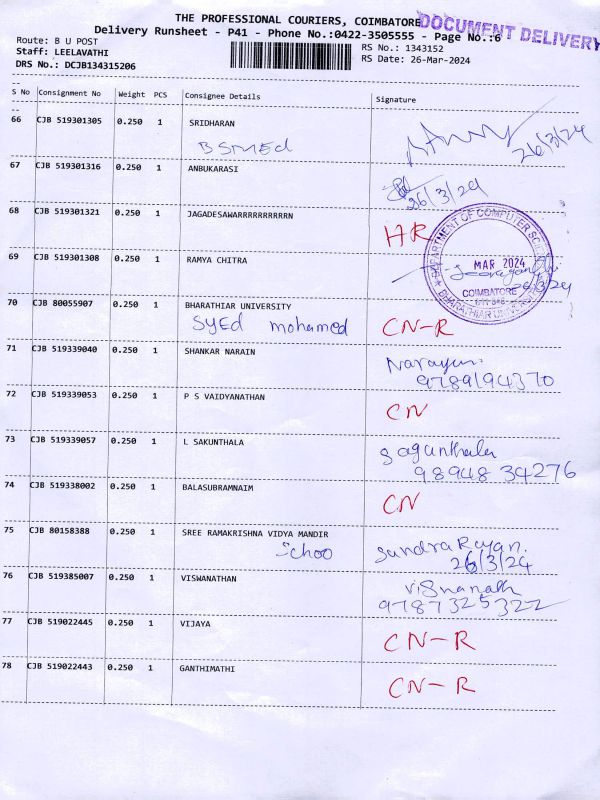 THE PROFESSIONAL COURIERS, COIMBATORE
DOCUMENT DELIVERY
Delivery Runsheet - P41 - Phone No.:0422-3505555 - Page No.:6
Route: B U POST
RS No.: 1343152
Staff: LEELAVATHI
RS Date: 26-Mar-2024
DRS No.: DCJB134315206
S No Consignment No Weight PCS Consignee Details Signature
66 CJB 519301305 0.250 1 SRIDHARAN
BSMEd 26/3/24
67 CJB 519301316 0.250 1 ANBUKARASI
26/3/24
68 CJB 519301321 0.250 1 JAGADESAWARRRRRRRRRRN
HR
DEPARTMENT OF COMPUTER
69 CJB 519301308 0.250 1 RAMYA CHITRA
MAR 2024
COIMBATORE
BHARATHIAR
26/3/24
70 CJB 80055907 0.250 1 BHARATHIAR UNIVERSITY
SYEd mohamed CN-R
71 CJB 519339040 0.250 1 SHANKAR NARAIN
Narayan
9789194370
72 CJB 519339053 0.250 1 P S VAIDYANATHAN
CN
73 CJB 519339057 0.250 1 L SAKUNTHALA
Sagunthala
98948 34276
74 CJB 519338002 0.250 1 BALASUBRAMNAIM
CN
75 CJB 80158388 0.250 1 SREE RAMAKRISHNA VIDYA MANDIR
Schoo SundraRajan.
26/3/24
76 CJB 519385007 0.250 1 VISWANATHAN
Visnanath
9787325322
77 CJB 519022445 0.250 1 VIJAYA
CN-R
78 CJB 519022443 0.250 1 GANTHIMATHI
CN-R